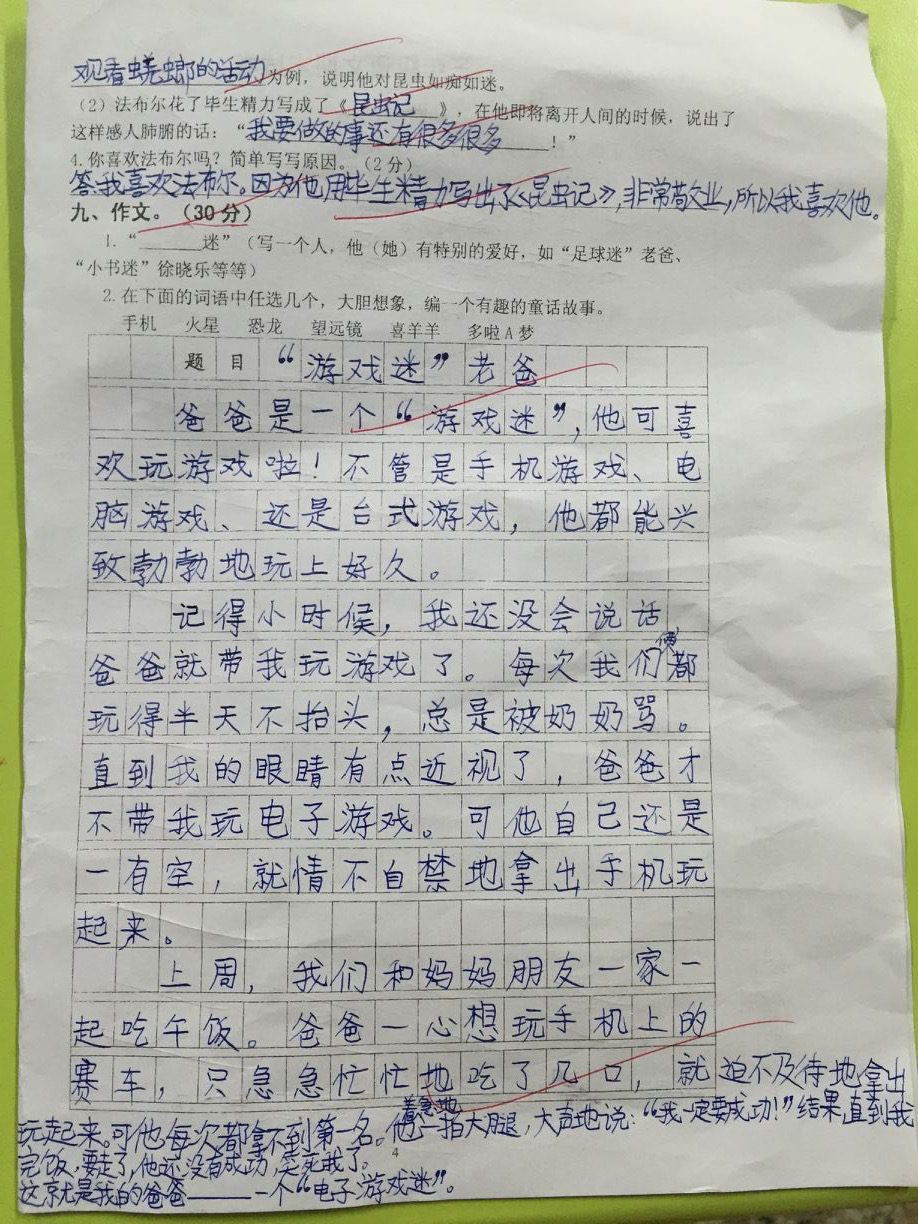 观看蜣螂的活动为例，说明他对昆虫如痴如迷。
（2）法布尔花了毕生精力写成了《昆虫记》，在他即将离开人间的时候，说出了
这样感人肺腑的话：“我要做的事还有很多很多！”
4.你喜欢法布尔吗？简单写写原因。（2分）
答:我喜欢法布尔。因为他用毕生精力写出了《昆虫记》，非常敬业，所以我喜欢他。
九、作文。（30分）
1.“______迷”（写一个人，他（她）有特别的爱好，如“足球迷”老爸、
“小书迷”徐晓乐等等）
2.在下面的词语中任选几个，大胆想象，编一个有趣的童话故事。
手机 火星 恐龙 望远镜 喜羊羊 多啦A梦
题目 “游戏迷”老爸
爸爸是一个“游戏迷”，他可喜
欢玩游戏啦！不管是手机游戏、电
脑游戏、还是台式游戏，他都能兴
致勃勃地玩上好久。
记得小时候，我还没会说话，
爸爸就带我玩游戏了。每次我们俩都
玩得半天不抬头，总是被奶奶骂。
直到我的眼睛有点近视了，爸爸才
不带我玩电子游戏。可他自己还是
一有空，就情不自禁地拿出手机玩
起来。
上周，我们和妈妈朋友一家一
起吃午饭。爸爸一心想玩手机上的
赛车，只急急忙忙地吃了几口，就迫不及待地拿出
玩起来。可他每次都拿不到第一名。他着急地一拍大腿，大声地说：“我一定要成功！”结果直到我
完饭，要走了，他还没有成功，笑死我了。
4
这就是我的爸爸——一个“电子游戏迷”。